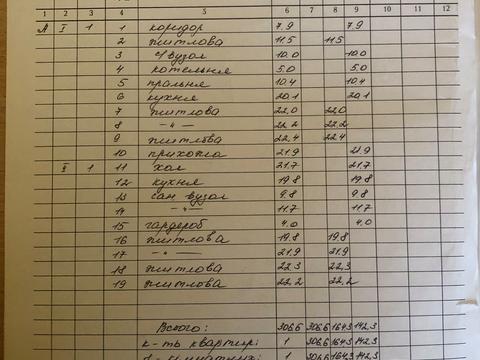 1 2 3 4 5 6 7 8 9 10 11 12
А I 1 1 коридор 7.9 7.9
2 житлова 11.5 11.5
3 с/вузол 10.0 10.0
4 котельня 5.0 5.0
5 пральня 10.4 10.4
6 кухня 20.1 20.1
7 житлова 22.0 22.0
8 —"— 22.2 22.2
9 житлова 22.4 22.4
10 прихожа 21.9 21.9
II 1 11 хол 21.7 21.7
12 кухня 19.8 19.8
13 сан вузол 9.8 9.8
14 —"— 11.7 11.7
15 гардероб 4.0 4.0
16 житлова 19.8 19.8
17 —"— 21.9 21.9
18 житлова 22.3 22.3
19 житлова 22.2 22.2
Всього: 306.6 306.6 164.3 142.3
к-ть квартир: 1 306.6 164.3 142.3
1 306.6 164.3 142.3